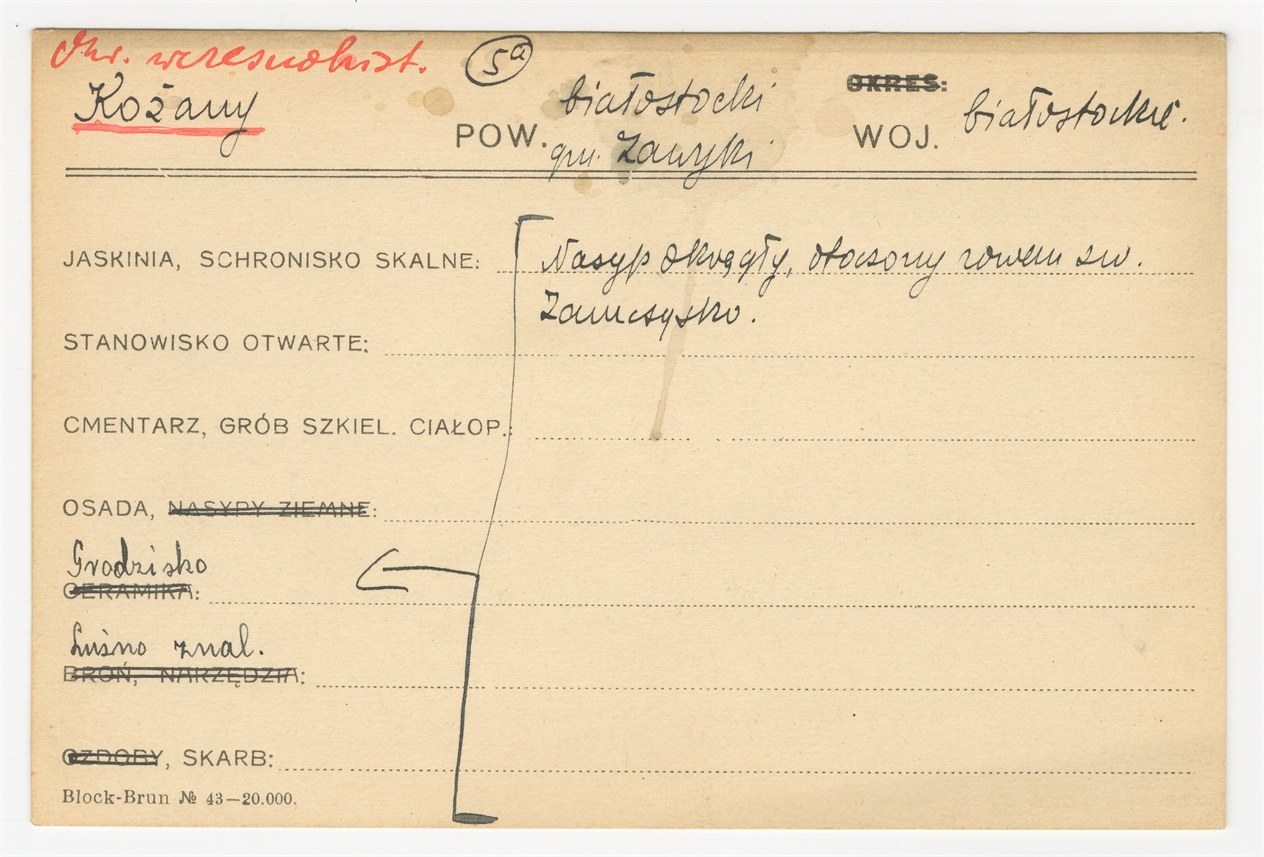 Okr. wczesnohist.
5a
Kożany
POW. białostocki
gm. Zawyki
OKRES:
WOJ. białostockie.
JASKINIA, SCHRONISKO SKALNE: Nasyp okrągły, otoczony rowem zw.
Zamczysko.
STANOWISKO OTWARTE:
CMENTARZ, GRÓB SZKIEL. CIAŁOP.:
OSADA, NASYPY ZIEMNE:
Grodzisko
CERAMIKA:
Luźno znal.
BROŃ, NARZĘDZIA:
OZDOBY, SKARB:
Block-Brun № 43—20.000.